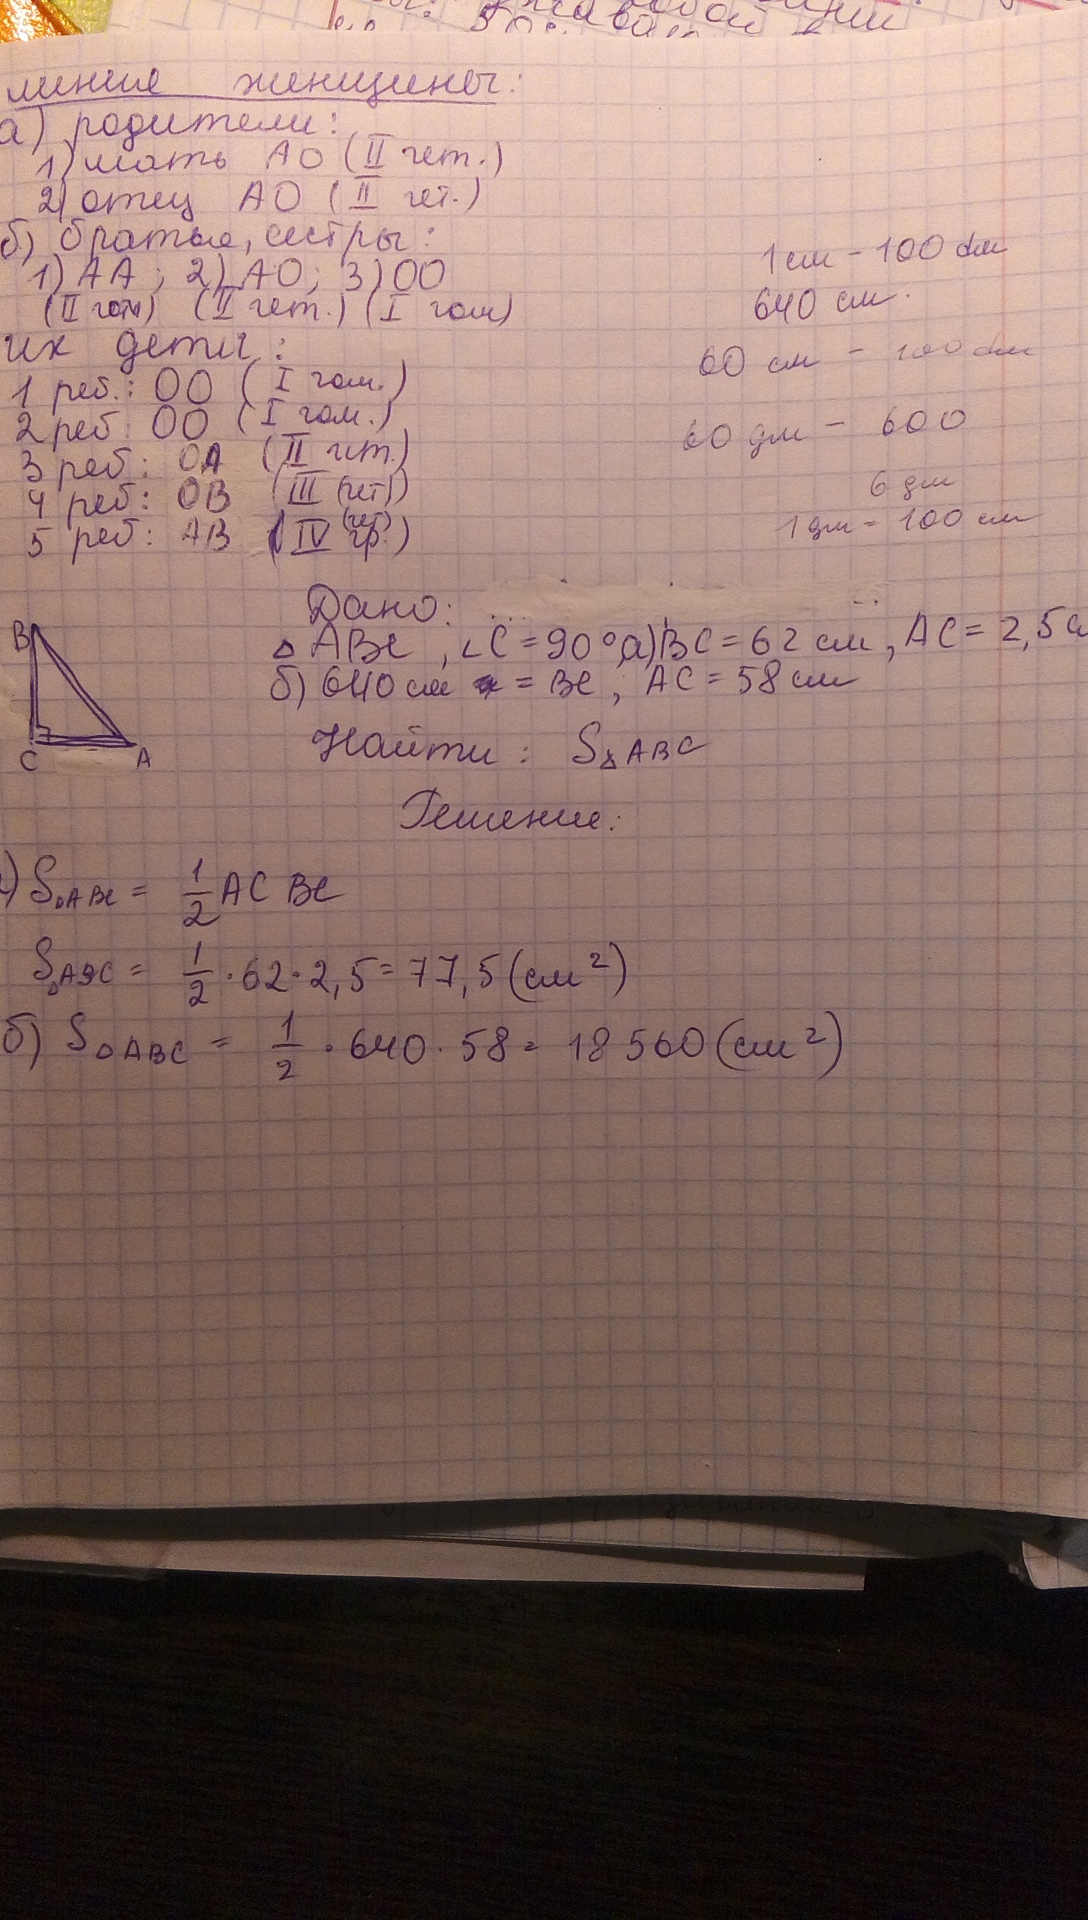 линие женщины:
а) родители:
1) мать АО (II гет.)
2) отец АО (II гет.)
б) братья, сестры:
1) АА; 2) АО; 3) ОО
(II гом) (II гет.) (I гом)
их дети:
1 реб.: ОО (I гом.)
2 реб: ОО (I гом.)
3 реб: ОА (II гет.)
4 реб: ОВ (III (гет))
5 реб: АВ (IV гр.) (гет)
1 см - 100 дм
640 см.
60 см - 100 дм
60 дм - 600
6 дм
1 дм = 100 см
Дано:
△ ABC, ∠C = 90°, а) BC = 62 см, AC = 2,5 с
б) 640 см = BC, AC = 58 см
Найти: S△ABC
Решение:
В
С
А
) S△ABC = 1/2 AC BC
S△ABC = 1/2 · 62 · 2,5 = 77,5 (см²)
б) S△ABC = 1/2 · 640 · 58 = 18 560 (см²)